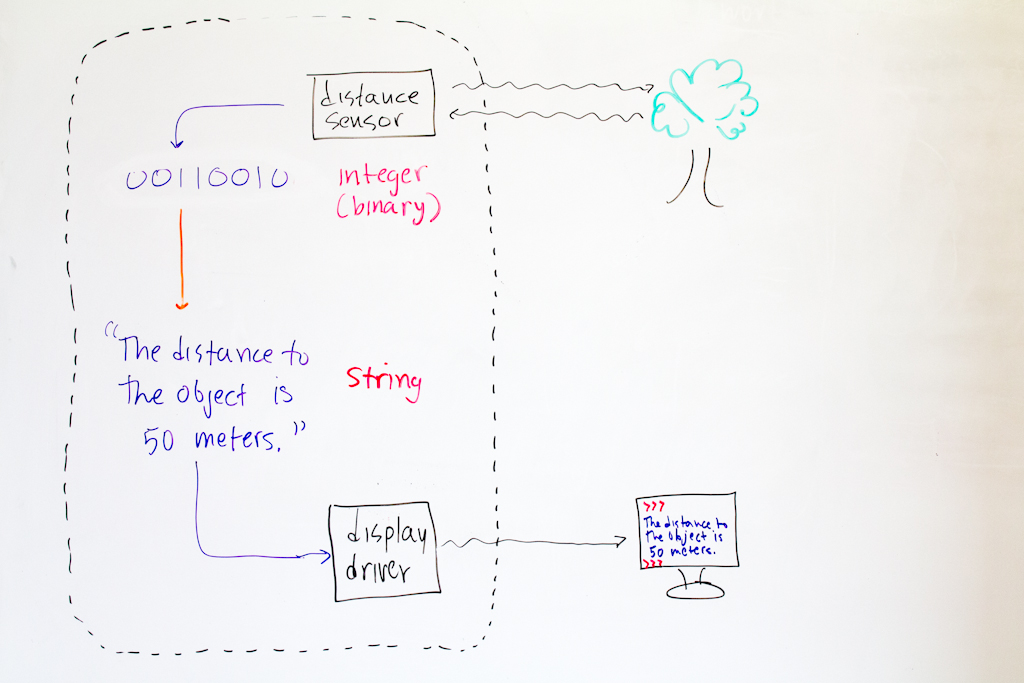 distance
sensor
00110010
integer
(binary)
"The distance to
the object is
50 meters."
String
display
driver
>>>
The distance to
the object is
50 meters.
>>>